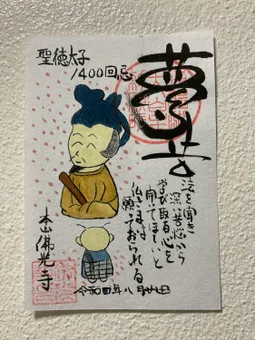 聖徳太子
1400回忌
法を聞き
深い苦悩から
学び取る心を
開いてほしいと
仏さまは
願っておられる
本山佛光寺
令和四年八月廿七日